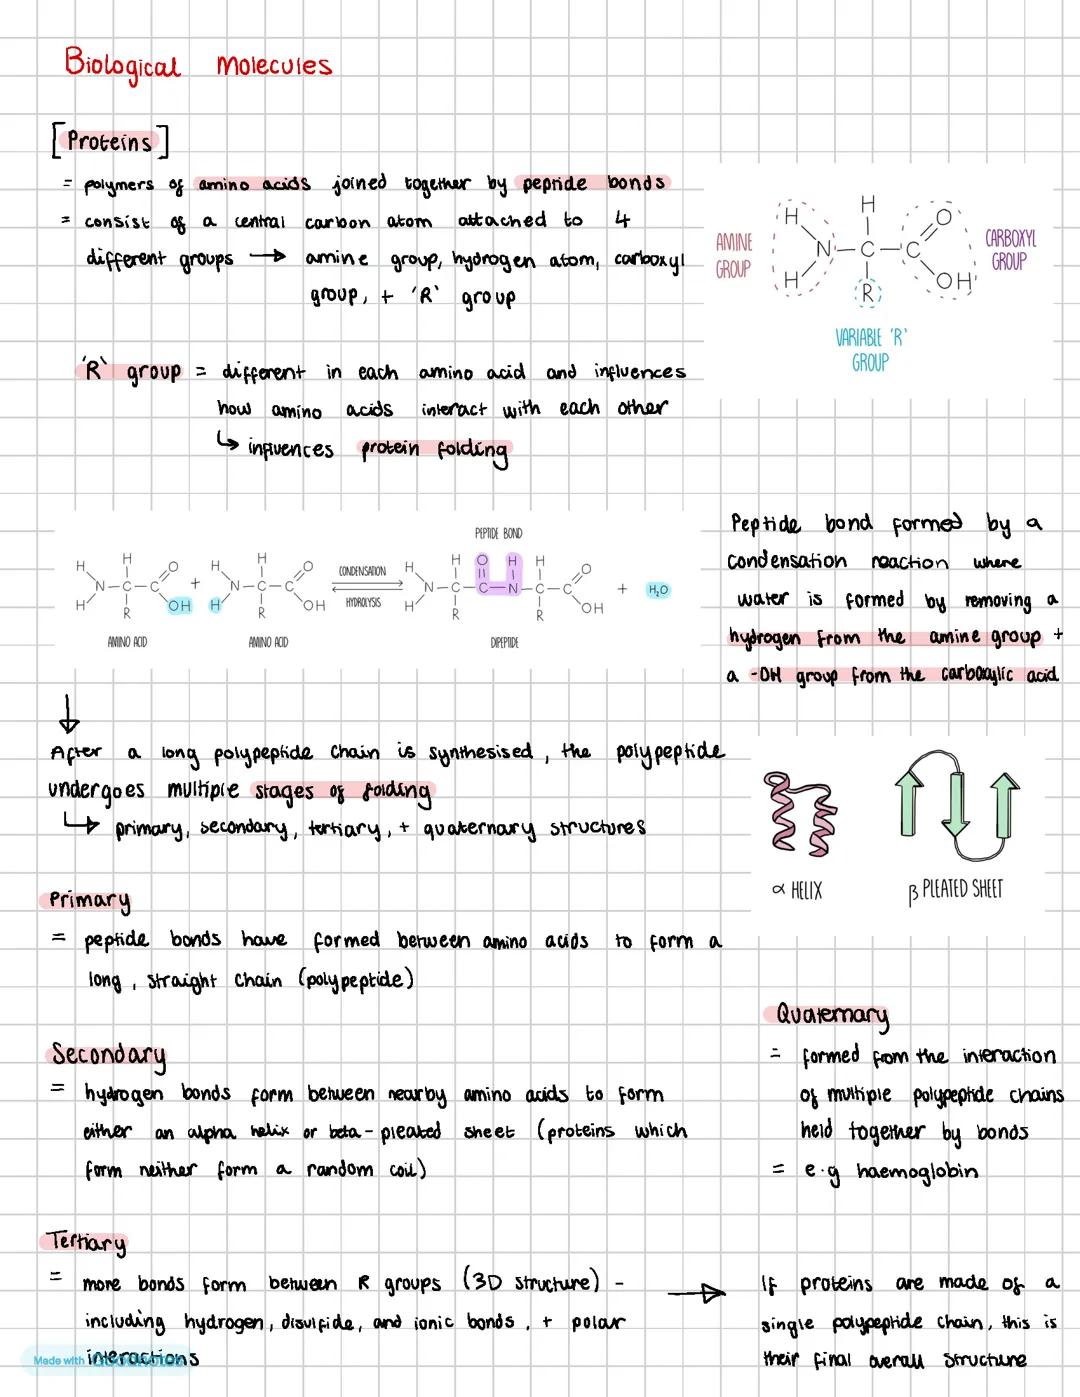 Biological Molecules
[Proteins]
= polymers of amino acids joined together by peptide bonds
= consist of a central carbon atom attached to 4
different groups → amine group, hydrogen atom, carboxyl
group, + 'R' group
AMINE
GROUP
H
H
H
N-C-C
O
OH
R
CARBOXYL
GROUP
VARIABLE 'R'
GROUP
'R' group = different in each amino acid and influences
how amino acids interact with each other
↳ influences protein folding
H H O
H N-C-C OH
R
AMINO ACID
+
H H O
H N-C-C OH
R
AMINO ACID
CONDENSATION
HYDROLYSIS
PEPTIDE BOND
H H O H H O
H N-C-C-N-C-C OH
R R
DIPEPTIDE
+ H₂O
Peptide bond formed by a
condensation reaction where
water is formed by removing a
hydrogen from the amine group +
a -OH group from the carboxylic acid
↓
After a long polypeptide chain is synthesised, the polypeptide
undergoes multiple stages of folding
↳ primary, secondary, tertiary, + quaternary structures
α HELIX
β PLEATED SHEET
Primary
= peptide bonds have formed between amino acids to form a
long, straight chain (polypeptide)
Secondary
= hydrogen bonds form between nearby amino acids to form
either an alpha helix or beta-pleated sheet (proteins which
form neither form a random coil)
Quaternary
= formed from the interaction
of multiple polypeptide chains
held together by bonds
= e.g haemoglobin
Tertiary
= more bonds form between R groups (3D structure) -
including hydrogen, disulfide, and ionic bonds, + polar
interactions
→ If proteins are made of a
single polypeptide chain, this is
their final overall structure
Made with Goodnotes